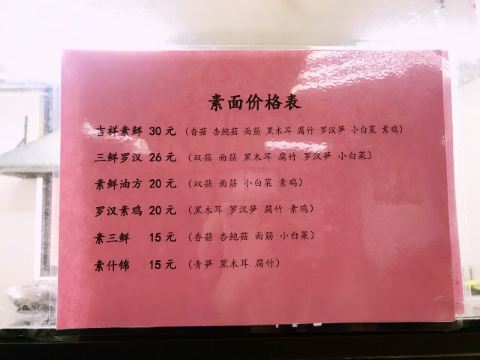 素面价格表
吉祥素鲜 30 元 (香菇 杏鲍菇 面筋 黑木耳 腐竹 罗汉笋 小白菜 素鸡)
三鲜罗汉 26 元 (双菇 面筋 黑木耳 腐竹 罗汉笋 小白菜)
素鲜油方 20 元 (双菇 面筋 小白菜 素鸡)
罗汉素鸡 20 元 (黑木耳 罗汉笋 腐竹 素鸡)
素三鲜 15 元 (香菇 杏鲍菇 面筋 小白菜)
素什锦 15 元 (青笋 黑木耳 腐竹)